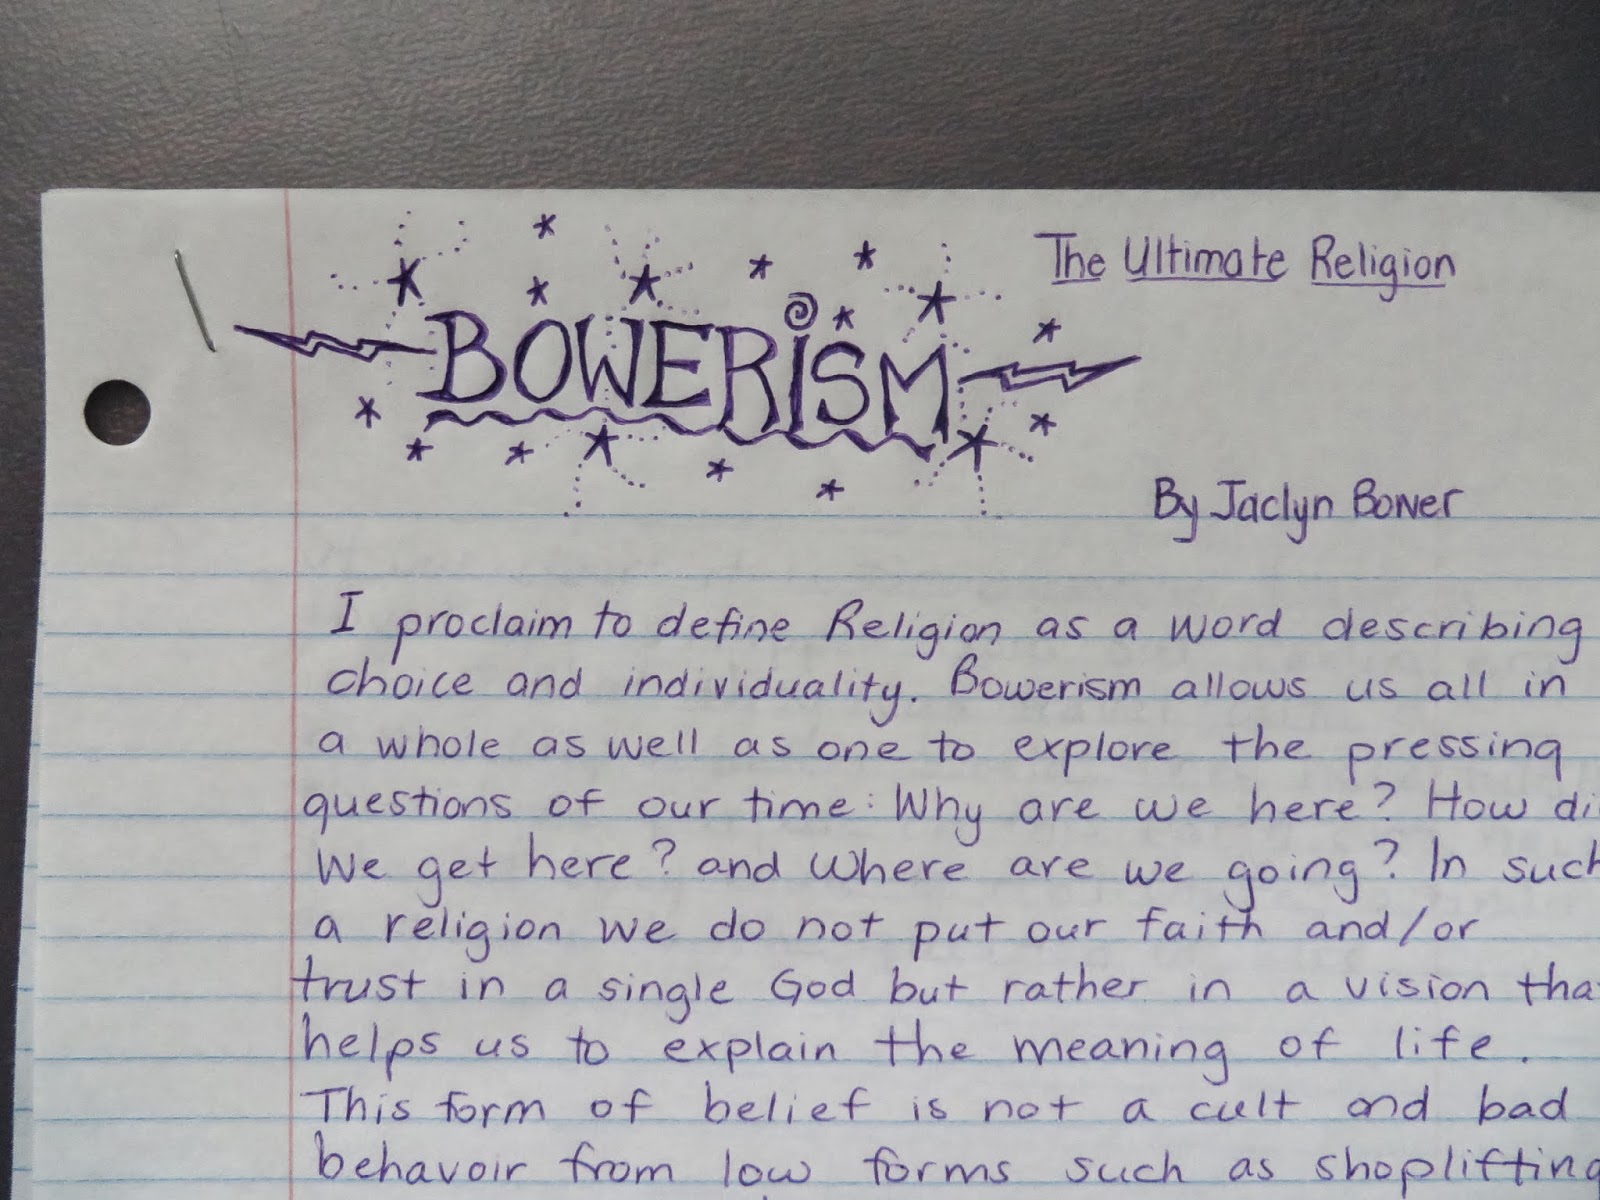 The Ultimate Religion
BOWERiSM
By Jaclyn Bower
I proclaim to define Religion as a word describing
choice and individuality. Bowerism allows us all in
a whole as well as one to explore the pressing
questions of our time: Why are we here? How di
We get here? and Where are we going? In such
a religion we do not put our faith and/or
trust in a single God but rather in a vision that
helps us to explain the meaning of life.
This form of belief is not a cult and bad
behavoir from low forms such as shoplifting